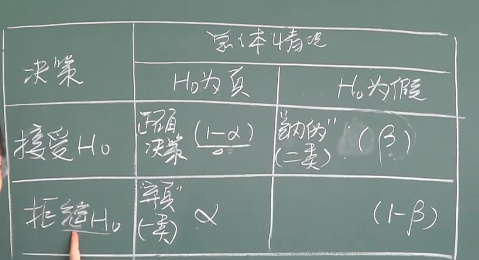 总体情况
决策
H₀为真
H₀为假
接受H₀
正确
决策
(1-α)
"纳伪"
(二类)
(β)
拒绝H₀
"弃真"
(一类)
α
(1-β)